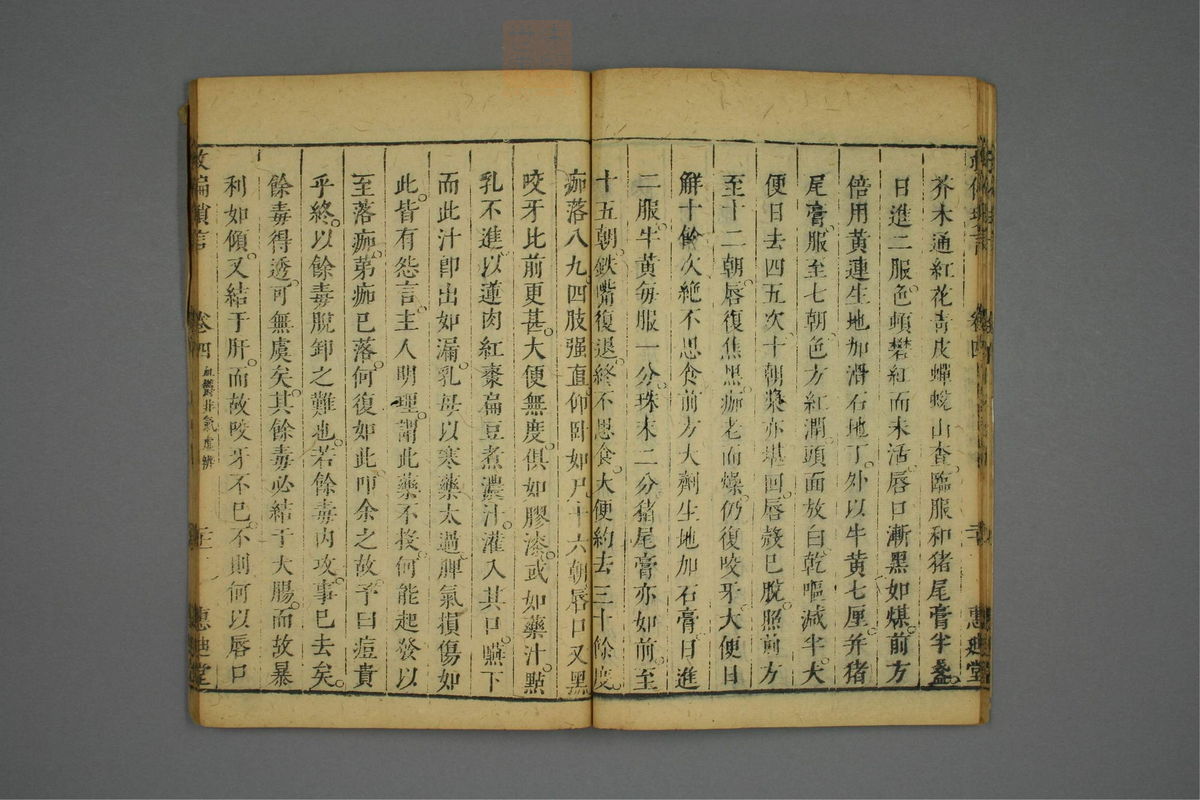 芥木通紅花靑皮蟬蛻山查臨服和猪尾膏半盞
日進二服色頓礬紅而未活唇口漸黑如煤前方
倍用黃連生地加滑石地丁外以牛黃七厘并猪
尾膏服至七朝色方紅潤頭面放白乾嘔減半大
便日去四五次十朝漿亦堪回唇殼已脫照前方
至十二朝唇復焦黑痂老而燥仍復咬牙大便日
解十餘次絶不思食前方大劑生地加石膏日進
二服牛黃每服一分珠末二分猪尾膏亦如前至
十五朝鉄嘴復退終不思食大便約去三十餘度
痂落八九四肢强直仰卧如尸十六朝唇口又黑
咬牙比前更甚大便無度俱如膠漆或如藥汁點
乳不進以蓮肉紅棗扁豆煮濃汁灌入其口嚥下
而此汁卽出如漏乳母以寒藥太過脾氣損傷如
此皆有怨言主人明理謂此藥不投何能起發以
至落痂第痂已落何復如此叩余之故予曰痘貴
乎終以餘毒脫卸之難也若餘毒內攻事已去矣
餘毒得透可無虞矣其餘毒必結于大腸而故暴
利如傾又結于肝而故咬牙不已不則何以唇口
卷四
惠迪堂